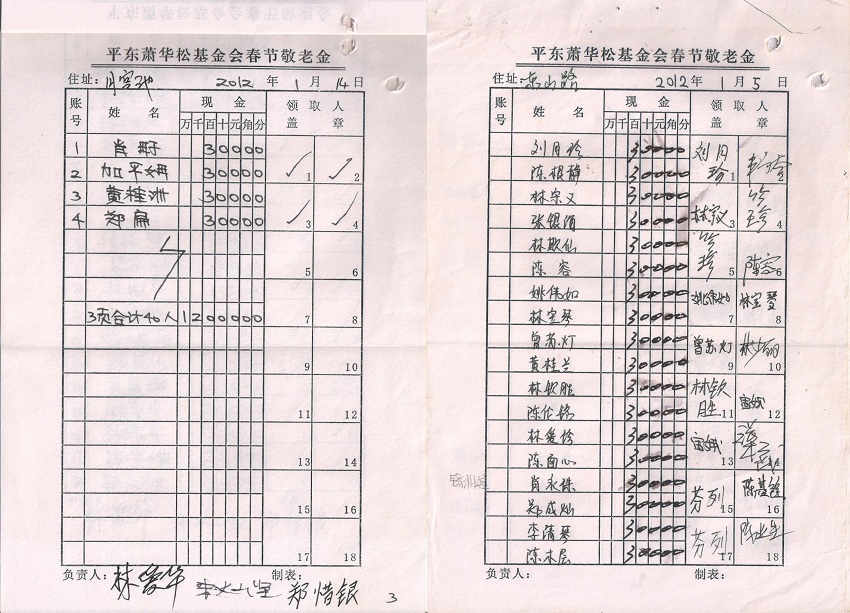 平东萧华松基金会春节敬老金
住址: 月宫池 2012 年 1 月 14 日
账号 姓名 现金 领取人
万 千 百 十 元 角 分 盖 章
1 肖 30000 1
2 加平姆 30000 2
3 黄桂洲 30000 3
4 郑扁 30000 4
5 6
3页合计40人 1200000 7 8
9 10
11 12
13 14
15 16
17 18
负责人: 林爱华 郑惜银 制表:
3
平东萧华松基金会春节敬老金
住址: 东山路 2012 年 1 月 5 日
账号 姓名 现金 领取人
万 千 百 十 元 角 分 盖 章
刘月珍 30000 刘月
陈根静 30000 珍 1 2
林宗义 30000
张银 30000 林宗义 3 4
林欺仙 30000
陈容 30000 5 陈容 6
姚伟如 30000 姚伟如 林宝琴
林宝琴 30000 7 8
曾苏灯 30000 曾苏灯
黄桂兰 30000 9 10
林钦胜 30000 林钦
陈佐 30000 胜 11 12
林爱珍 30000
陈面心 30000 13 14
肖永珠 30000
郑成灿 30000 芬列 15 16
李清琴 30000
陈木层 30000 芬列 17 18
负责人: 制表: